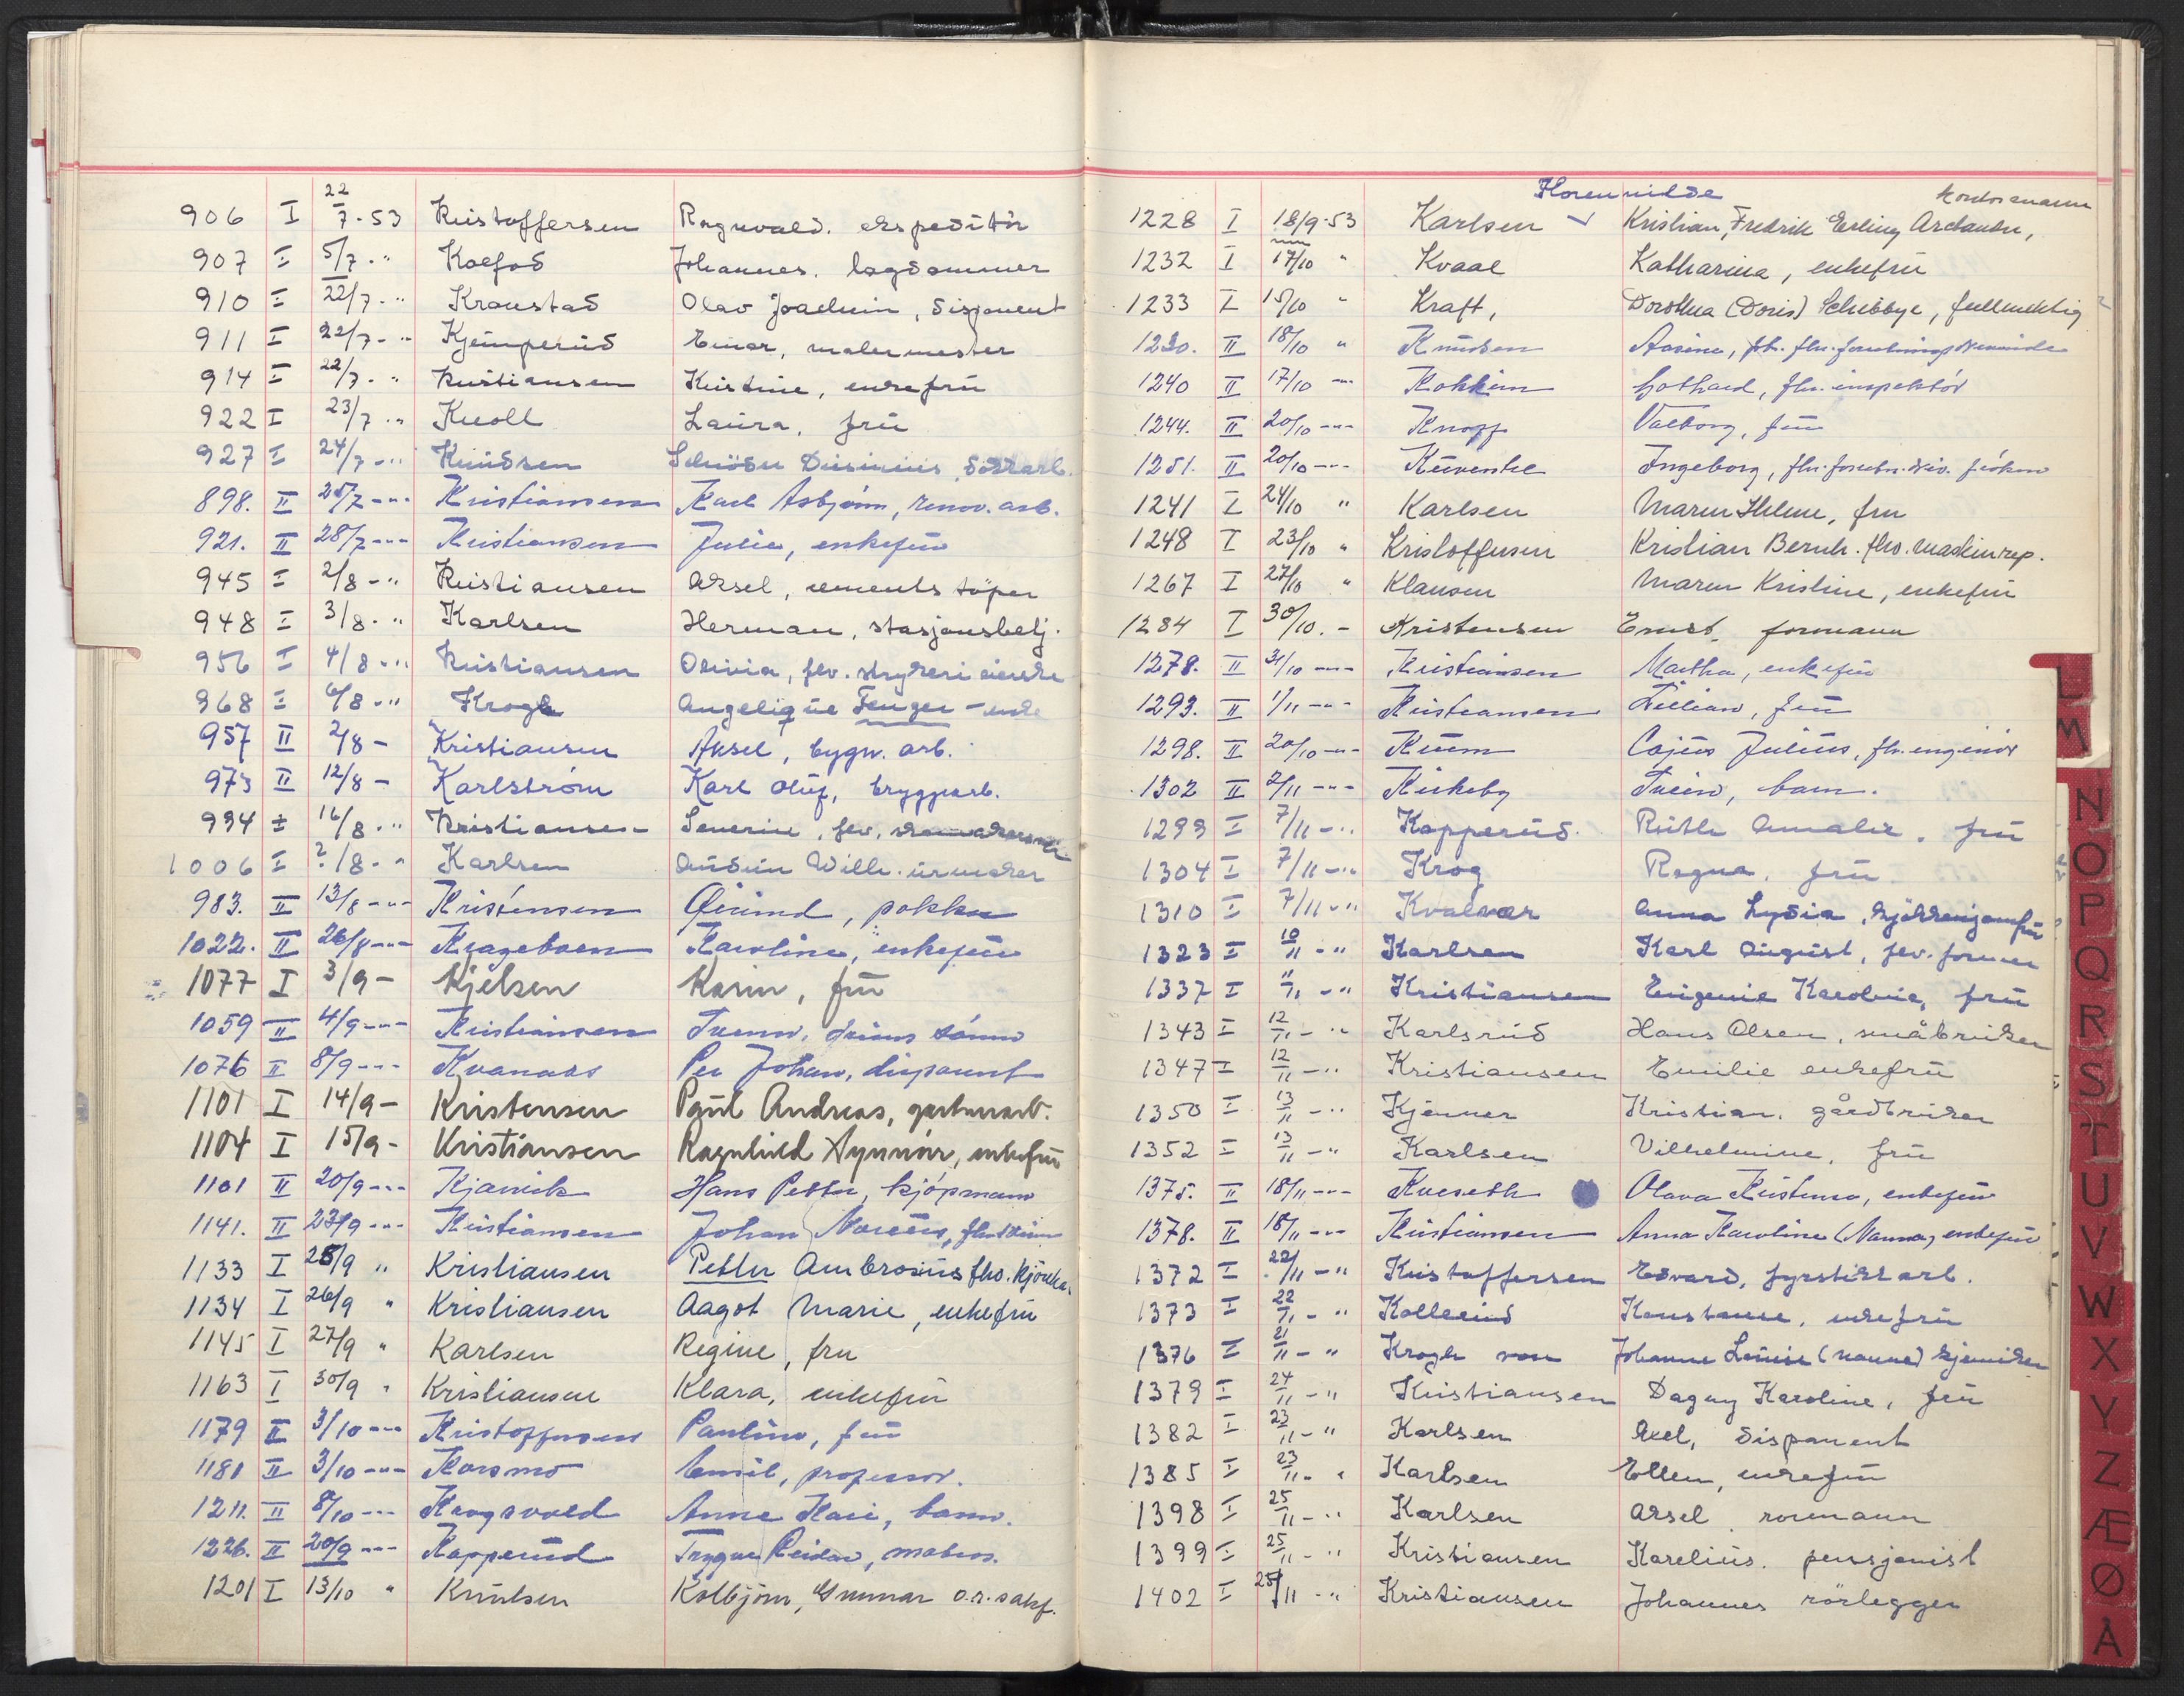 906 I 22/7-53 Kristoffersen Ragnvald. ekspeditør
907 I 5/7-" Koefod Johannes. lagdommer
910 I 22/7-" Kronstad Olav Joachim, disponent
911 I 22/7-" Kjemperud Einar, malermester
914 I 22/7-" Kristiansen Kristine, enkefru
922 I 23/7-" Knoll Laura, fru
927 I 24/7-" Knudsen
898. II 25/7-"- Kristiansen Karl Asbjørn, renov. arb.
921. II 28/7-"- Kristiansen Julie, enkefru
945 I 2/8-" Kristiansen Aksel, cementstøper
948 I 3/8-" Karlsen Herman, stasjonsbetj.
956 I 4/8-" Kristiansen Olivia, fev. strykeri eierske
968 I 6/8-" Krogh Angelique Fenger - enke
957 II 2/8- Kristiansen Aksel, bygn. arb.
973 II 12/8- Karlström Karl Oluf, bryggearb.
994 I 16/8-" Kristiansen Severine, fev.
1006 I ?/8-" Karlsen Audun Wilh. urmaker
983. II 13/8-"- Kristensen Øivind, pakker
1022. II 26/8-"- Krageboen Karoline, enkefru
1077 I 3/9- Kjelsen Karin, fru
1059 II 4/9-"- Kristiansen
1076 II 8/9-"- Kvanaas Per Johan, disponent
1101 I 14/9- Kristensen Paul Andreas, gartnerarb.
1104 I 15/9- Kristiansen Ragnhild Synnøve, enkefru
1101 II 20/9-"- Kjærvik Hans Petter, kjøpmann
1141. II 23/9-"- Kristiansen Johan
1133 I 25/9 " Kristiansen Petter Ambrosius fhv.
1134 I 26/9 " Kristiansen Aagot Marie, enkefru
1145 I 27/9 " Karlsen Regine, fru
1163 I 30/9 " Kristiansen Klara, enkefru
1179 II 3/10-"- Kristoffersen Pauline, fru
1181 II 3/10-"- Korsmo Emil, professor.
1211. II 8/10-"- Krogsvold Anne Kari, barn.
1226. II 20/9-"- Kopperud Trygve Reidar, matros.
1201 I 13/10 " Knutsen Kolbjørn, Gunnar o.r. sakf.
Florenvilde kontormann
1228 I 18/9-53 Karlsen Kristian, Fredrik Erling Arctander,
1232 I 17/10 " Kvaal Katharina, enkefru
1233 I 15/10 " Kraft, Dorothea (Doris) Schibbye, fullmektig
1230. II 18/10 " Knudsen Aasine,
1240 II 17/10 -"- Kokkim Gothard, fhv. inspektør
1244. II 20/10-"- Knopf Valborg, fru
1251. II 20/10-"- Ingeborg,
1241 I 24/10 " Karlsen Maren Helene, fru
1248 I 23/10 " Kristoffersen Kristian Bernh. fhv. maskinrep.
1267 I 27/10 " Klausen Maren Kristine, enkefru
1284 I 30/10.- Kristensen Ernst, formann
1278. II 31/10-"- Kristiansen Martha, enkefru
1293. II 1/11-"- Kristiansen Lillian, fru
1298. II 20/10-"- Krum Cajus Julius, fhv. engeniør
1302 II 2/11-"- Kirkeby barn.
1299 I 7/11-" Kopperud. Ruth Amalie, fru
1304 I 7/11-" Krog Ragna, fru
1310 I 7/11-" Kvalvær Anna Lydia, kjøkkenjomfru
1323 I 10/11-" Karlsen Karl August, fev. former
1337 I 11/11-" Kristiansen Eugenie Karoline, fru
1343 I 12/11-" Karlsrud Hans Olsen, småbruker
1347 I 12/11-" Kristiansen Emilie enkefru
1350 I 13/11-" Kjenner Kristian. gårdbruker
1352 I 13/11-" Karlsen Vilhelmine, fru
1375. II 18/11-"- Kveseth Olava Kristense, enkefru
1378. II 18/11-"- Kristiansen Anna Karoline (Nanna) enkefru
1372 I 22/11-" Kristoffersen Edvard, fyrstikkarb.
1373 I 22/11-" Kollerud Konstanse, enkefru
1376 I 21/11-" Krogh von Johanne Louise (Nanne) kjemiker
1379 I 24/11-" Kristiansen Dagny Karoline, fru
1382 I 23/11-" Karlsen Axel, disponent
1385 I 23/11-" Karlsen Ellen, enkefru
1398 I 25/11-" Karlsen Aksel formann
1399 I 25/11-" Kristiansen Karelius. pensjonist
1402 I 25/11-" Kristiansen Johannes rørlegger
L
M
N
O
P
Q
R
S
T
U
V
W
X
Y
Z
Æ
Ø
Å